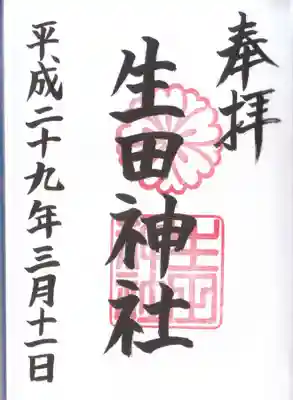 奉拝
生田神社
平成二十九年三月十一日